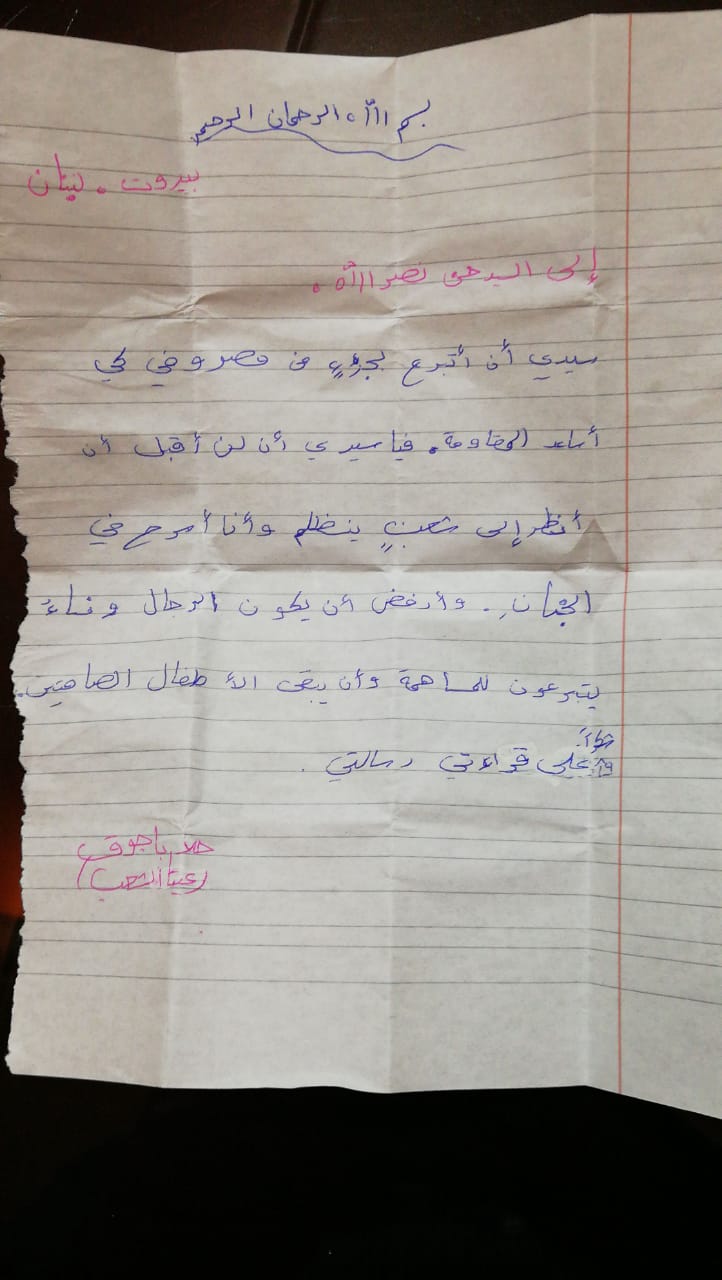 بسم الله الرحمان الرحيم
بيروت. لبنان
إلى السيد حسن نصر الله.
سيدي أن أتبرع بجزءٍ من مصروفي كي
أساعد المقاومة. فيا سيدي أن لن أقبل أن
أنظر إلى شعبٍ ينظلم وأنا أمرح في
الجنانِ. وأرفض أن يكون الرجال ونساءً
يتبرعون للمساهمة وأن يبقى الأطفال الصامتين.
شكراً
على قراءتي رسالتي.
(عيتا الشعب)